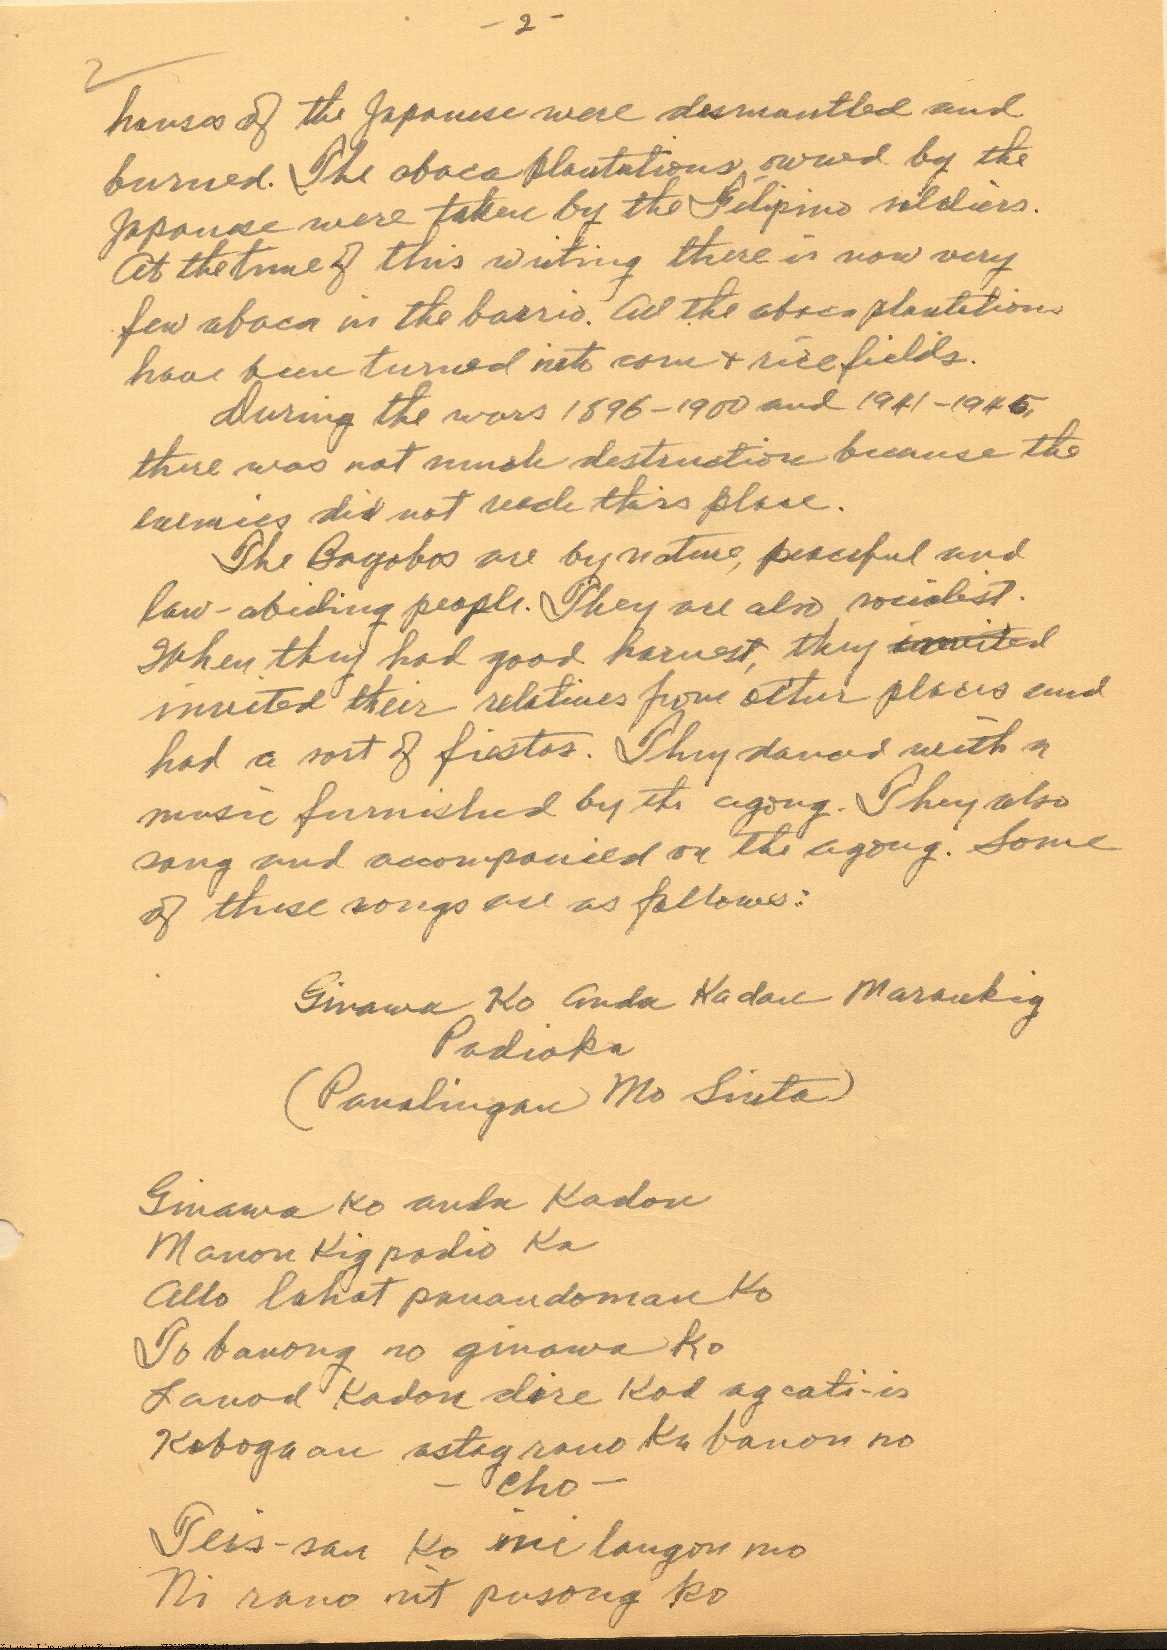 - 2 -
2
houses of the Japanese were dismantled and
burned. The abaca plantations, owned by the
Japanese were taken by the Filipino soldiers.
At the time of this writing there is now very
few abaca in the barrio. All the abaca plantations
have been turned into corn + rice fields.
During the wars 1896-1900 and 1941-1945,
there was not much destruction because the
enemies did not reach this place.
The Bagobos are by nature, peaceful and
law-abiding people. They are also socialist.
When they had good harvest, they invited
invited their relatives from other places and
had a sort of fiestas. They danced with a
music furnished by the agong. They also
sang and accompanied on the agong. Some
of these songs are as follows:
Ginawa Ko Anda Kadan Maronkig
Padioka
(Panalingan Mo Sinta)
Ginawa Ko anda Kadon
Manon Kig padio Ka
Allo lahat panandoman Ko
To banong no ginawa Ko
Lanod Kadon dire Kad agcati-is
Kabogaan astag rano Ka banon no
- Cho -
Teis-san Ko ini langon mo
Ni rano nit pusong ko